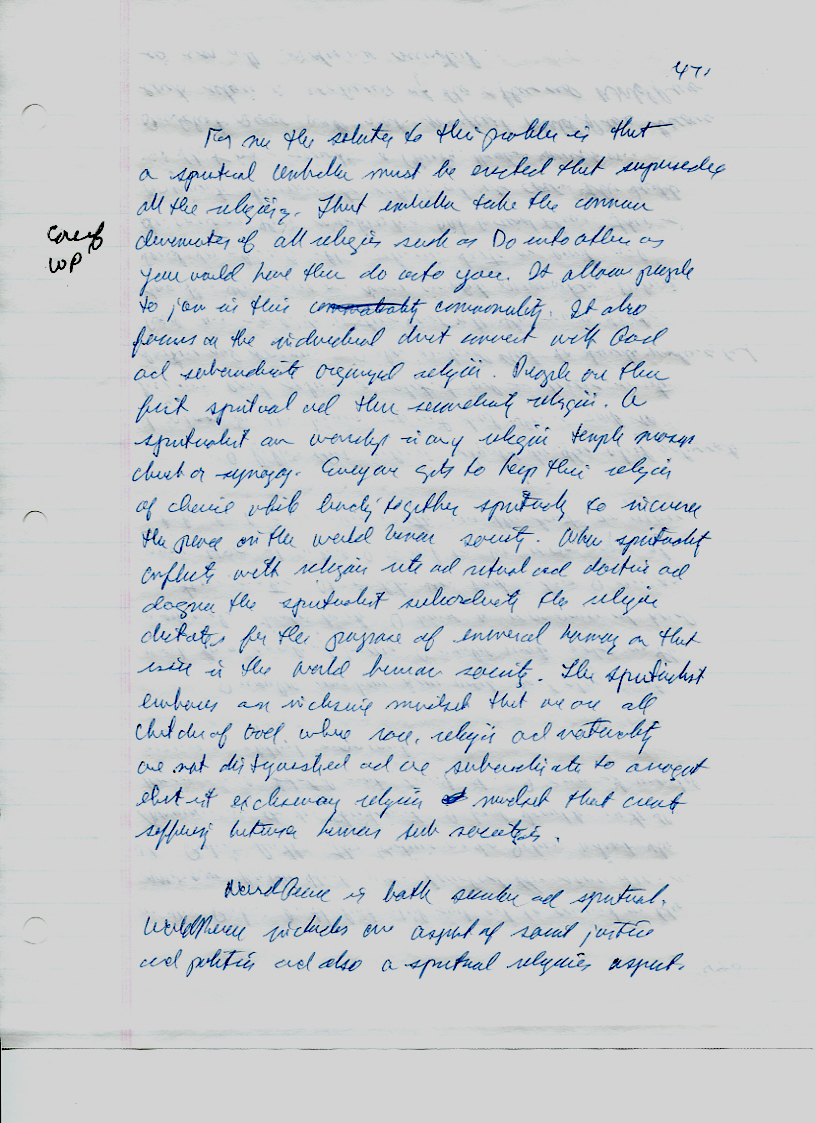 471
For me the solution to this problem is that
a spiritual umbrella must be erected that supersedes
all the religions. That umbrella take the common
Core of
WP
denominator of all religions such as Do unto others as
you would have them do unto you. It allows people
to join in this commonality commonality. It also
focuses on the individual direct connect with God
and subordinates organized religion. People are then
first spiritual and then secondarily religion. A
spiritualist can worship in any religion temple mosque
church or synagog. Everyone gets to keep their religion
of choice while binding together spiritually to increase
the peace on the world human society. When spirituality
conflicts with religion rite and ritual and doctrine and
dogma the spiritualist subordinates the religion
dictates for the purpose of universal harmony on that
issue in the world human society. The spiritualist
embraces an inclusive mindset that we are all
children of God where race, religion and nationality
are not distinguished and are subordinate to arrogant
elitist exclusionary religion mindset that creates
suffering between human sub societies.
WorldPeace is both secular and spiritual.
WorldPeace includes one aspect of social justice
and politics and also a spiritual religious aspect.